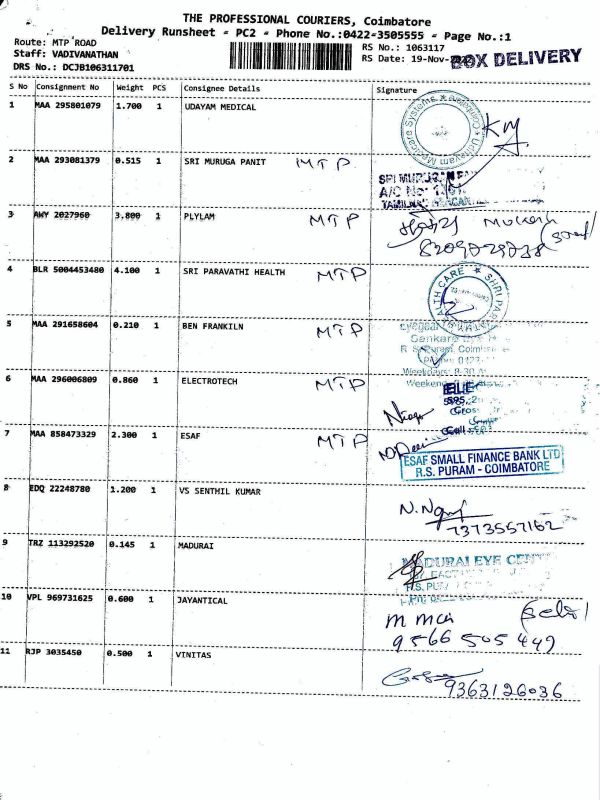 THE PROFESSIONAL COURIERS, Coimbatore
Delivery Runsheet - PC2 - Phone No.:0422-3505555 - Page No.:1
Route: MTP ROAD
Staff: VADIVANATHAN
DRS No.: DCJB106311701
RS No.: 1063117
RS Date: 19-Nov-
BOX DELIVERY
S No Consignment No Weight PCS Consignee Details Signature
1 MAA 295801079 1.700 1 UDAYAM MEDICAL
2 MAA 293081379 0.515 1 SRI MURUGA PANIT MTP
SRI MURUGAN
A/C No:
3 AWY 2027960 3.800 1 PLYLAM MTP
8209729738
4 BLR 5004453480 4.100 1 SRI PARAVATHI HEALTH MTP
HEALTH CARE ★ SHRI
5 MAA 291658604 0.210 1 BEN FRANKILN MTP
6 MAA 296006809 0.860 1 ELECTROTECH MTP
7 MAA 858473329 2.300 1 ESAF MTP
ESAF SMALL FINANCE BANK LTD
R.S. PURAM - COIMBATORE
8 EDQ 22248780 1.200 1 VS SENTHIL KUMAR
7373557162
9 TRZ 113292520 0.145 1 MADURAI
MADURAI EYE CENT
10 VPL 969731625 0.600 1 JAYANTICAL
9566 505 449
11 RJP 3035450 0.500 1 VINITAS
9363126036